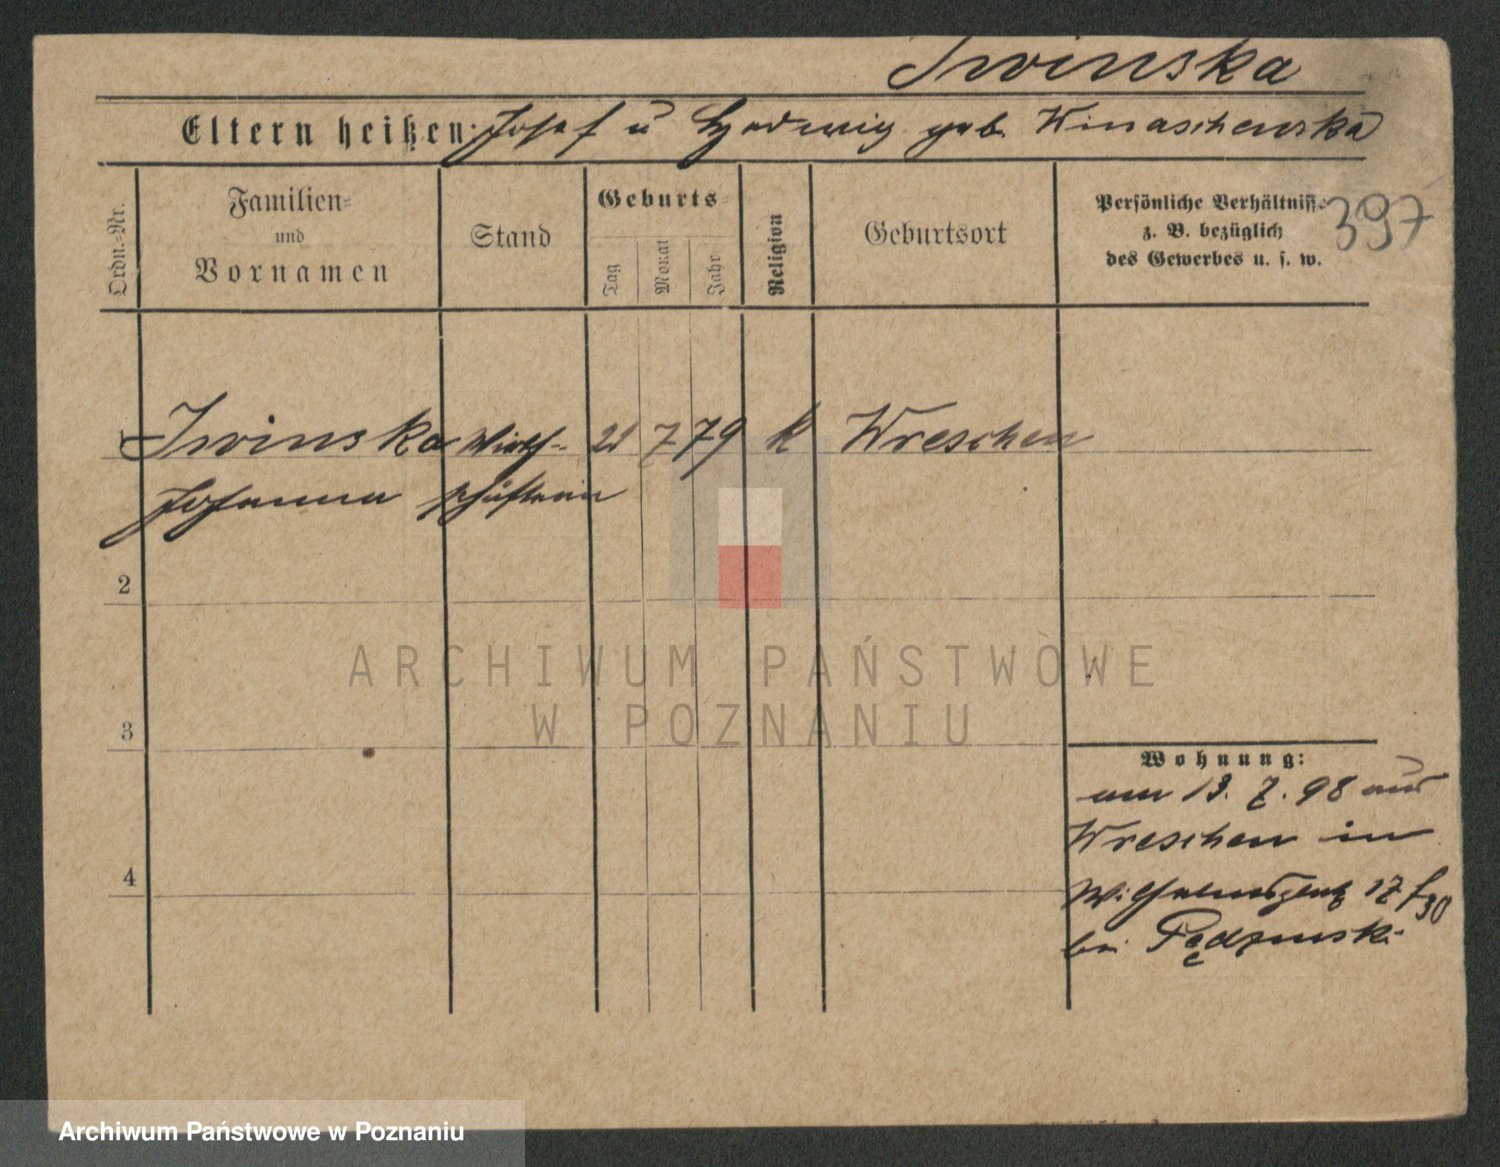 Iwinska
Eltern heißen: Josef u Hedwig geb. Winaschewska
Ordn.-Nr.
Familien-
und
Vornamen
Stand
Geburts
Tag
Monat
Jahr
Religion
Geburtsort
Persönliche Verhältnisse
z. B. bezüglich
des Gewerbes u. s. w.
397
1 Iwinska Wirth- 21 7 79 k Wreschen
Johanna schafterin
2
3
4
Wohnung:
am 13. 7. 98 aus
Wreschen in
Wilhelmsplatz 17
bei
ARCHIWUM PAŃSTWOWE
W POZNANIU
Archiwum Państwowe w Poznaniu